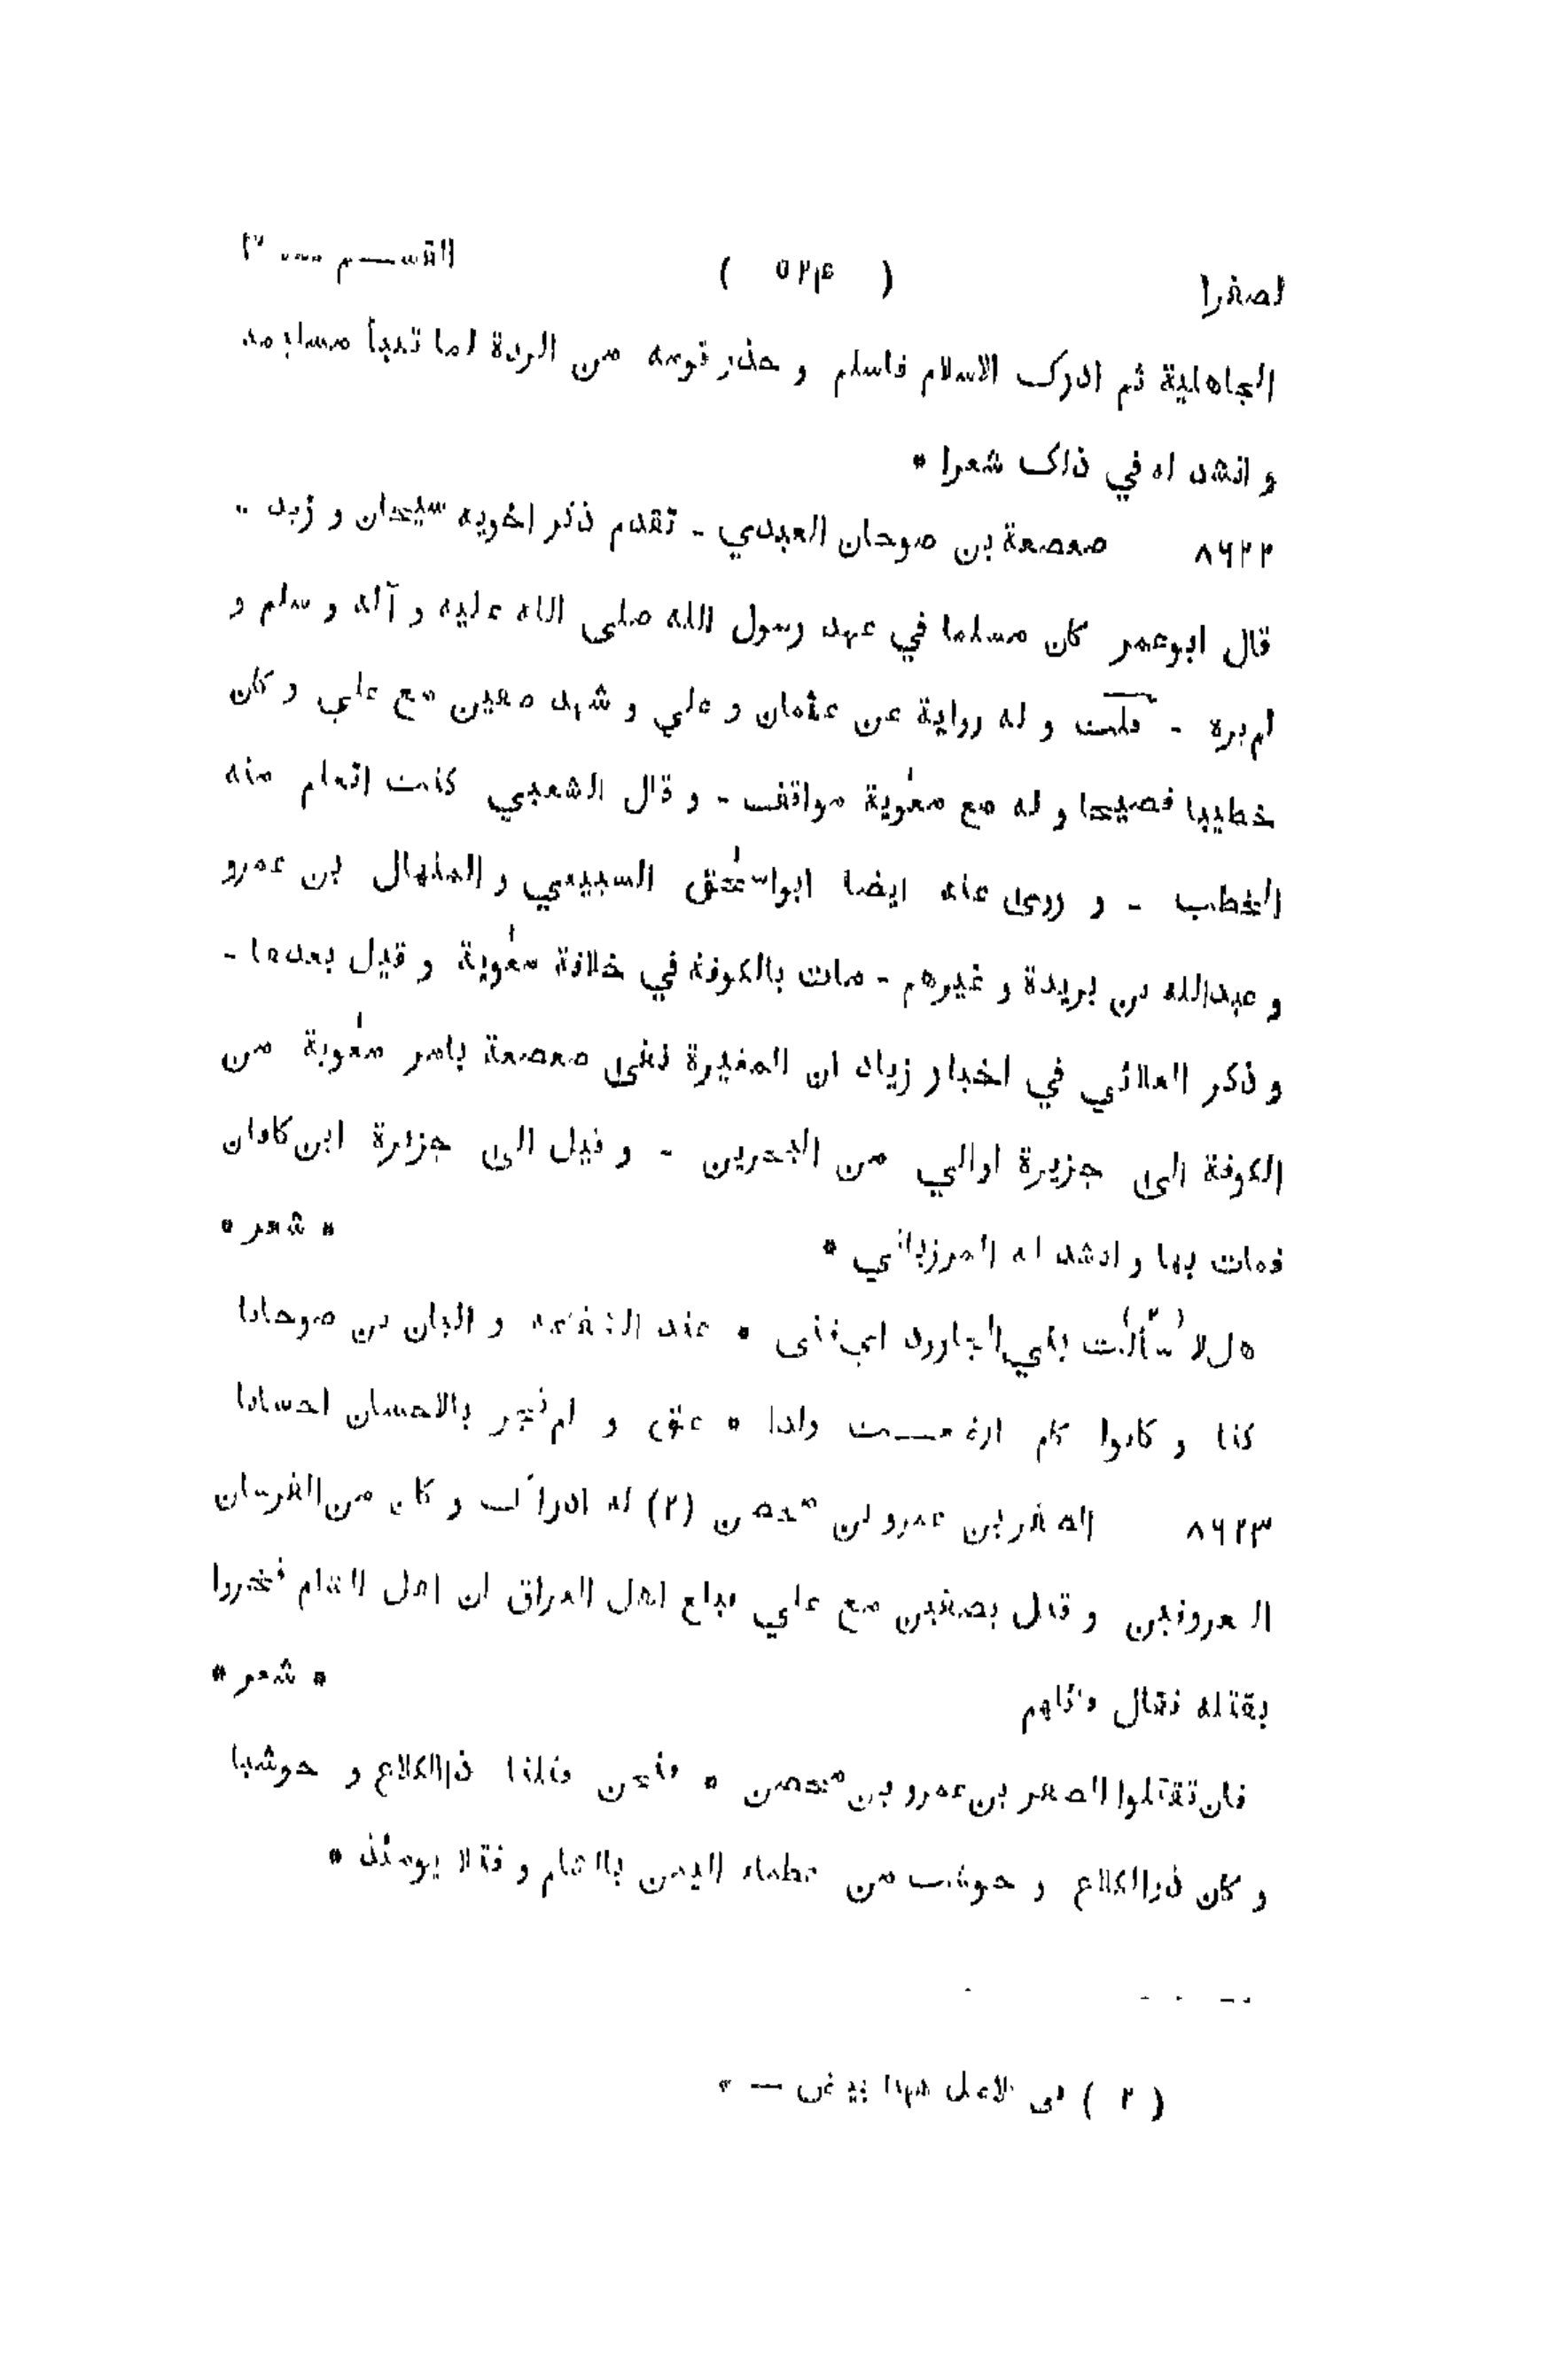 لصغرا ( ۵۲۴ ) القسم — ۳
الجاهلية ثم ادرک الاسلام فاسلم و حذر قومه من الردة لما تنبأ مسليمه
و انشد له في ذلک شعرا *
۸۶۲۲ صعصعة بن صوحان العبدي - تقدم ذكر اخويه سيحان و زيد -
قال ابوعمر كان مسلما في عهد رسول الله صلى الله عليه و آله و سلم و
لم يره - قلت و له رواية عن عثمان و علي و شهد صفين مع علي و كان
خطيبا فصيحا و له مع معٰوية مواقف - و قال الشعبي كنت اتعلم منه
الخطب - و روى عنه ايضا ابواسحٰق السبيعي و المنهال بن عمرو
و عبدالله بن بريدة و غيرهم - مات بالكوفة في خلافة معٰوية و قيل بعدها -
و ذكر العلائي في اخبار زياد ان المغيرة نفى صعصعة بامر معٰوية من
الكوفة الى جزيرة اوالي من البحرين - و قيل الى جزيرة ابن كاوان
فمات بها و انشد له المرزباني * * شعر *
هلا سألت بني الجارود اي فتى * عند الشفاعة و البان بن صوحانا
كنا و كانوا كام ارضعت ولدا * عق و لم نجر بالاحسان احسانا
۸۶۲۳ الصقر بن عمرو بن محصن (۲) له ادراک و كان من الفرسان
المعروفين و قتل بصفين مع علي فبلغ اهل العراق ان اهل الشام فخروا
بقتله فقال قائلهم * شعر *
فان تقتلوا الصقر بن عمرو بن محصن * فنحن قتلنا ذا الكلاع و حوشبا
و كان ذو الكلاع و حوشب من عظماء اليمن بالشام و قتلا يومئذ *
( ۲ ) في الاصل هنا بياض — *